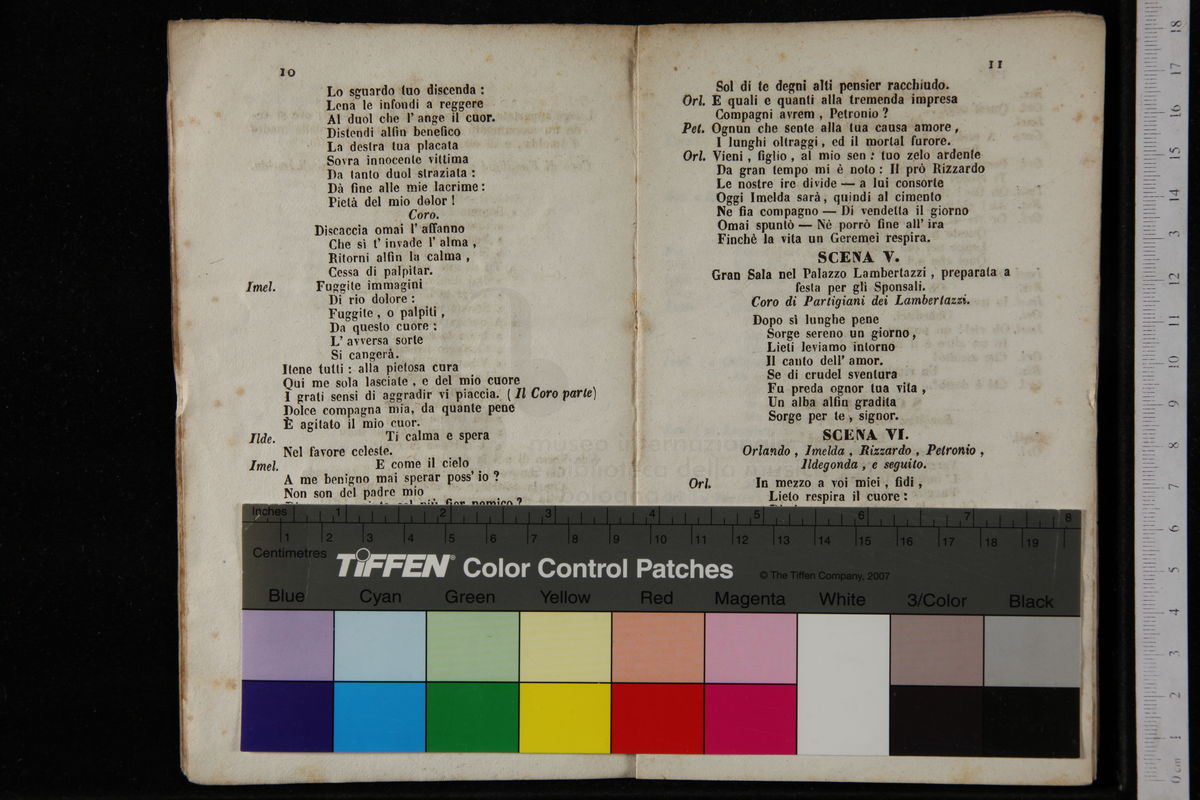 10
Lo sguardo tuo discenda :
Lena le infondi a reggere
Al duol che l' ange il cuor.
Distendi alfin benefico
La destra tua placata
Sovra innocente vittima
Da tanto duol straziata :
Dà fine alle mie lacrime :
Pietà del mio dolor !
Coro.
Discaccia omai l' affanno
Che sì t' invade l' alma ,
Ritorni alfin la calma ,
Cessa di palpitar.
Imel. Fuggite immagini
Di rio dolore :
Fuggite , o palpiti ,
Da questo cuore :
L' avversa sorte
Si cangerà.
Itene tutti : alla pietosa cura
Qui me sola lasciate , e del mio cuore
I grati sensi di aggradir vi piaccia. ( Il Coro parte)
Dolce compagna mia, da quante pene
È agitato il mio cuor.
Ilde. Ti calma e spera
Nel favore celeste.
Imel. E come il cielo
A me benigno mai sperar poss' io ?
Non son del padre mio
11
Sol di te degni alti pensier racchiudo.
Orl. E quali e quanti alla tremenda impresa
Compagni avrem , Petronio ?
Pet. Ognun che sente alla tua causa amore ,
I lunghi oltraggi, ed il mortal furore.
Orl. Vieni , figlio , al mio sen : tuo zelo ardente
Da gran tempo mi è noto : Il prò Rizzardo
Le nostre ire divide — a lui consorte
Oggi Imelda sarà, quindi al cimento
Ne fia compagno — Di vendetta il giorno
Omai spuntò — Nè porrò fine all' ira
Finchè la vita un Geremei respira.
SCENA V.
Gran Sala nel Palazzo Lambertazzi , preparata a
festa per gli Sponsali.
Coro di Partigiani dei Lambertazzi.
Dopo sì lunghe pene
Sorge sereno un giorno ,
Lieti leviamo intorno
Il canto dell' amor.
Se di crudel sventura
Fu preda ognor tua vita ,
Un alba alfin gradita
Sorge per te , signor.
SCENA VI.
Orlando , Imelda , Rizzardo , Petronio ,
Ildegonda , e seguito.
Orl. In mezzo a voi miei , fidi ,
Lieto respira il cuore :
Inches 1 2 3 4 5 6 7 8
Centimetres 1 2 3 4 5 6 7 8 9 10 11 12 13 14 15 16 17 18 19
TIFFEN® Color Control Patches © The Tiffen Company, 2007
Blue Cyan Green Yellow Red Magenta White 3/Color Black
18
17
16
15
14
13
12
11
10
9
8
7
6
5
4
3
2
1
0 cm